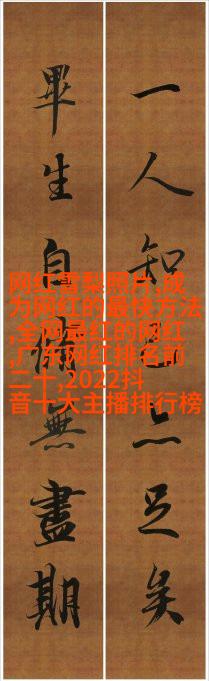 一人知己亦足矣
畢生自脩無盡期
网红雪梨照片,成
为网红的最快方法
,全网最红的网红
,广东网红排名前
二十,2022抖
音十大主播排行榜